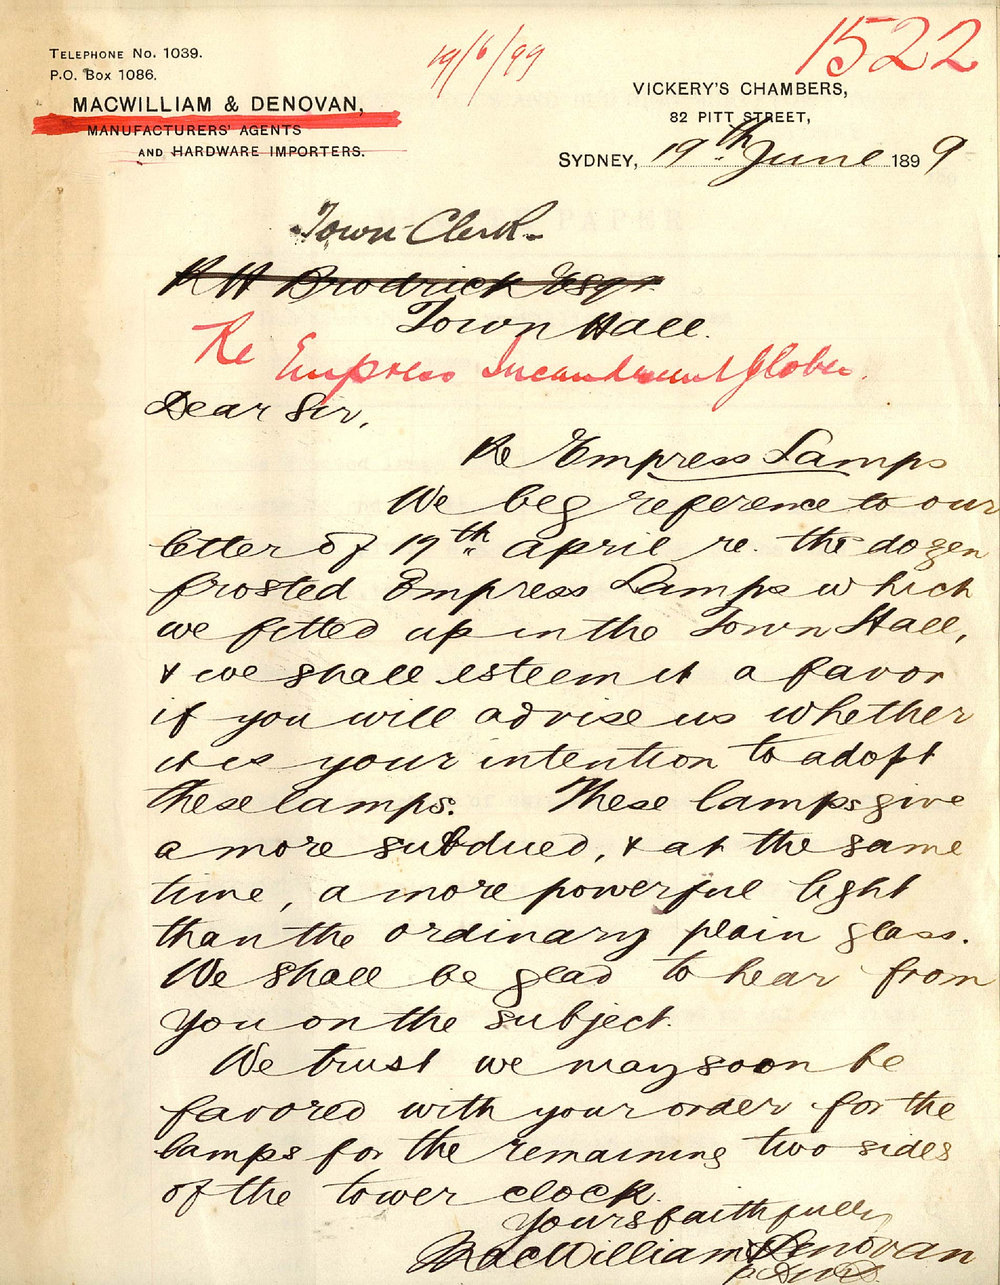 TELEPHONE No. 1039.
P.O. Box 1086.
MACWILLIAM & DENOVAN,
MANUFACTURERS' AGENTS
AND HARDWARE IMPORTERS.
19/6/99
1522
VICKERY'S CHAMBERS,
82 PITT STREET,
SYDNEY, 19th June 1899
Town Clerk
R H Brodrick Esqr.
Town Hall.
Re Empress Incandescent Globes.
Dear Sir,
Re Empress Lamps
We beg reference to our
letter of 19th April re. the dozen
frosted Empress Lamps which
we fitted up in the Town Hall,
& we shall esteem it a favor
if you will advise us whether
it is your intention to adopt
these lamps. These lamps give
a more subdued, & at the same
time, a more powerful light
than the ordinary plain glass.
We shall be glad to hear from
you on the subject.
We trust we may soon be
favored with your order for the
lamps for the remaining two sides
of the tower clock.
Yours faithfully
MacWilliam & Denovan